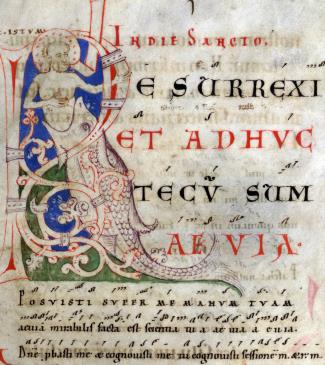 IN DIE SANCTO.
RE SURREXI
ET ADHVC
TECV̄ SUM
AEVIA.
POSVISTI SVPER ME MANVM TVAM
aevia mirabilis facta est scientia tua aevia aevia.
Dn̄e p̄basti me & cognovisti me tu cognovisti sessionē m. & r. m.